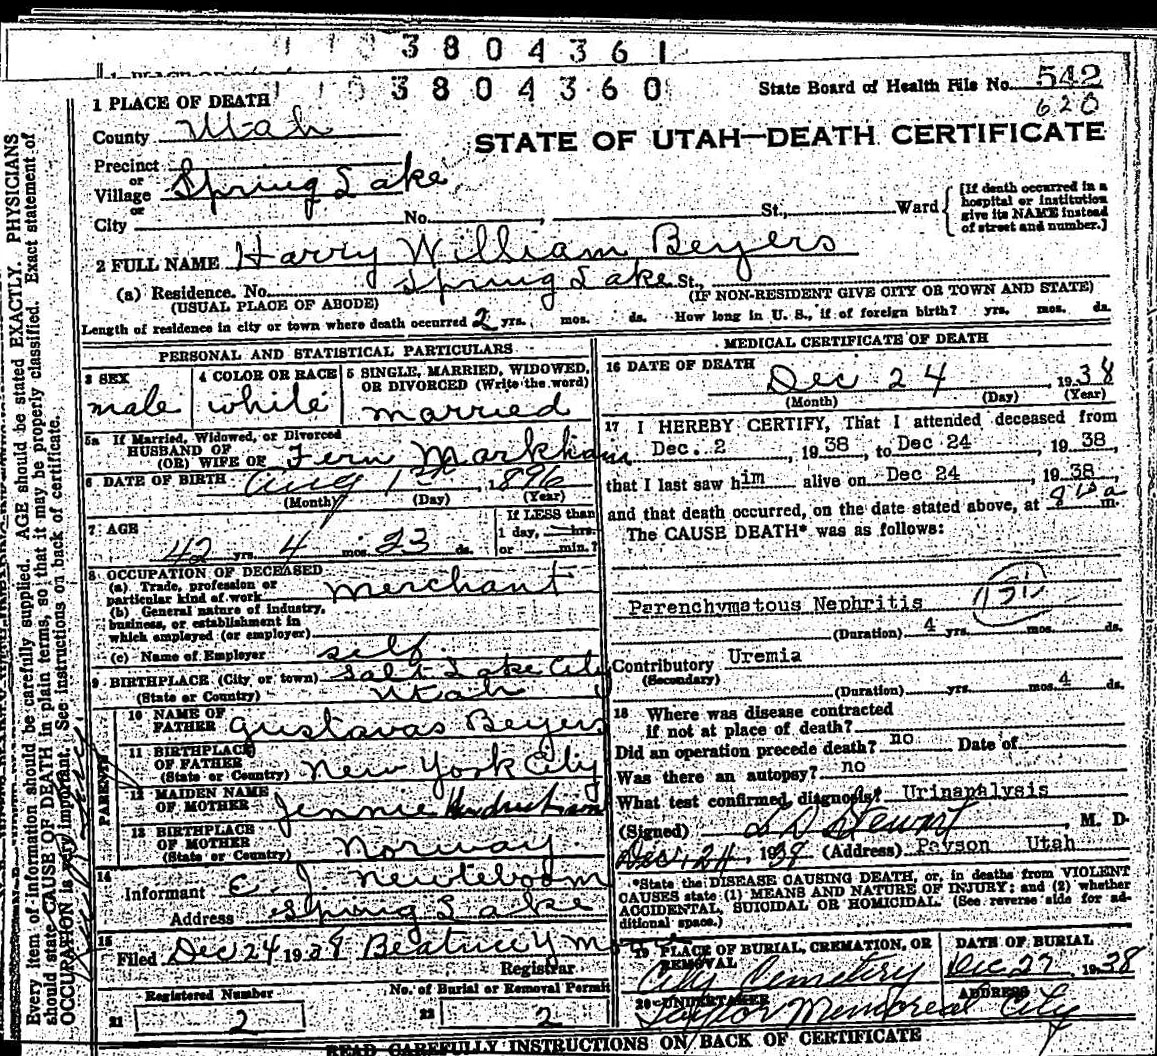 3804361
3804360
State Board of Health File No. 542
620
1 PLACE OF DEATH
County Utah
STATE OF UTAH—DEATH CERTIFICATE
Precinct
or
Village Spring Lake
or
City No. , St., Ward
[If death occurred in a
hospital or institution
give its NAME instead
of street and number.]
2 FULL NAME Harry William Beyers
(a) Residence. No. Spring Lake St.,
(USUAL PLACE OF ABODE) (IF NON-RESIDENT GIVE CITY OR TOWN AND STATE)
Length of residence in city or town where death occurred 2 yrs. mos. ds. How long in U. S., if of foreign birth? yrs. mos. ds.
PERSONAL AND STATISTICAL PARTICULARS
3 SEX
male
4 COLOR OR RACE
white
5 SINGLE, MARRIED, WIDOWED,
OR DIVORCED (Write the word)
married
5a If Married, Widowed, or Divorced
HUSBAND OF
(OR) WIFE OF Fern Markham
6 DATE OF BIRTH Aug 1st, 1896
(Month) (Day) (Year)
7 AGE
42 yrs. 4 mos. 23 ds.
If LESS than
1 day, hrs.
or min.?
8 OCCUPATION OF DECEASED
(a) Trade, profession or
particular kind of work merchant
(b) General nature of industry,
business, or establishment in
which employed (or employer)
(c) Name of Employer self
9 BIRTHPLACE (City or town) Salt Lake City
(State or Country) Utah
PARENTS
10 NAME OF
FATHER Gustavas Beyers
11 BIRTHPLACE
OF FATHER
(State or Country) New York City
12 MAIDEN NAME
OF MOTHER Jennie
13 BIRTHPLACE
OF MOTHER
(State or Country) Norway
14
Informant E. J. Newteboom
Address Spring Lake
15
Filed Dec 24 1938 Beatrice Y
Registrar
Registered Number
21 2
No. of Burial or Removal Permit
22 2
MEDICAL CERTIFICATE OF DEATH
16 DATE OF DEATH
Dec 24, 1938
(Month) (Day) (Year)
17 I HEREBY CERTIFY, That I attended deceased from
Dec. 2, 1938, to Dec 24, 1938,
that I last saw him alive on Dec 24, 1938,
and that death occurred, on the date stated above, at m.
The CAUSE DEATH* was as follows:
Parenchymatous Nephritis 131
(Duration) 4 yrs. mos. ds.
Contributory Uremia
(Secondary)
(Duration) yrs. mos. 4 ds.
18 Where was disease contracted
if not at place of death?
Did an operation precede death? no Date of
Was there an autopsy? no
What test confirmed diagnosis? Urinaralysis
(Signed) L D Stewart, M. D.
Dec. 24, 1938 (Address) Payson Utah
*State the DISEASE CAUSING DEATH, or, in deaths from VIOLENT
CAUSES state (1) MEANS AND NATURE OF INJURY; and (2) whether
ACCIDENTAL, SUICIDAL OR HOMICIDAL. (See reverse side for ad-
ditional space.)
19 PLACE OF BURIAL, CREMATION, OR
REMOVAL
City Cemetery
DATE OF BURIAL
Dec 27, 1938
20 UNDERTAKER
Taylor Memoreal
ADDRESS
City
READ CAREFULLY INSTRUCTIONS ON BACK OF CERTIFICATE
Every item of information should be carefully supplied. AGE should be stated EXACTLY. PHYSICIANS
should state CAUSE OF DEATH in plain terms, so that it may be properly classified. Exact statement of
OCCUPATION is very important. See instructions on back of certificate.